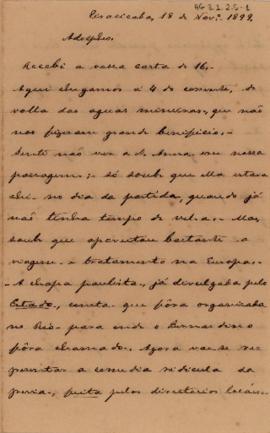 AG 2.1.2.5-1
Piracicaba, 18 de Nov.º 1899.
Adolpho.
Recebi a vossa carta de 16.
Aqui chegamos a 4 do corrente, de
volta das aguas mineraes, que não
nos fizeram grande beneficio.
Senti não ver a d. Anna em nossa
passagem; só soube que ella estava
ahi no dia da partida, quando já
não tinha tempo de vel-a. Mas,
soube que aproveitou bastante a
viagem e tratamento na Europa.
A chapa paulista, já divulgada pelo
Estado, consta que fôra organisada
no Rio para onde o Bernardino
fôra chamado. Agora vae-se re-
presentar a comedia ridicula da
previa, feita pelos directorios locáes